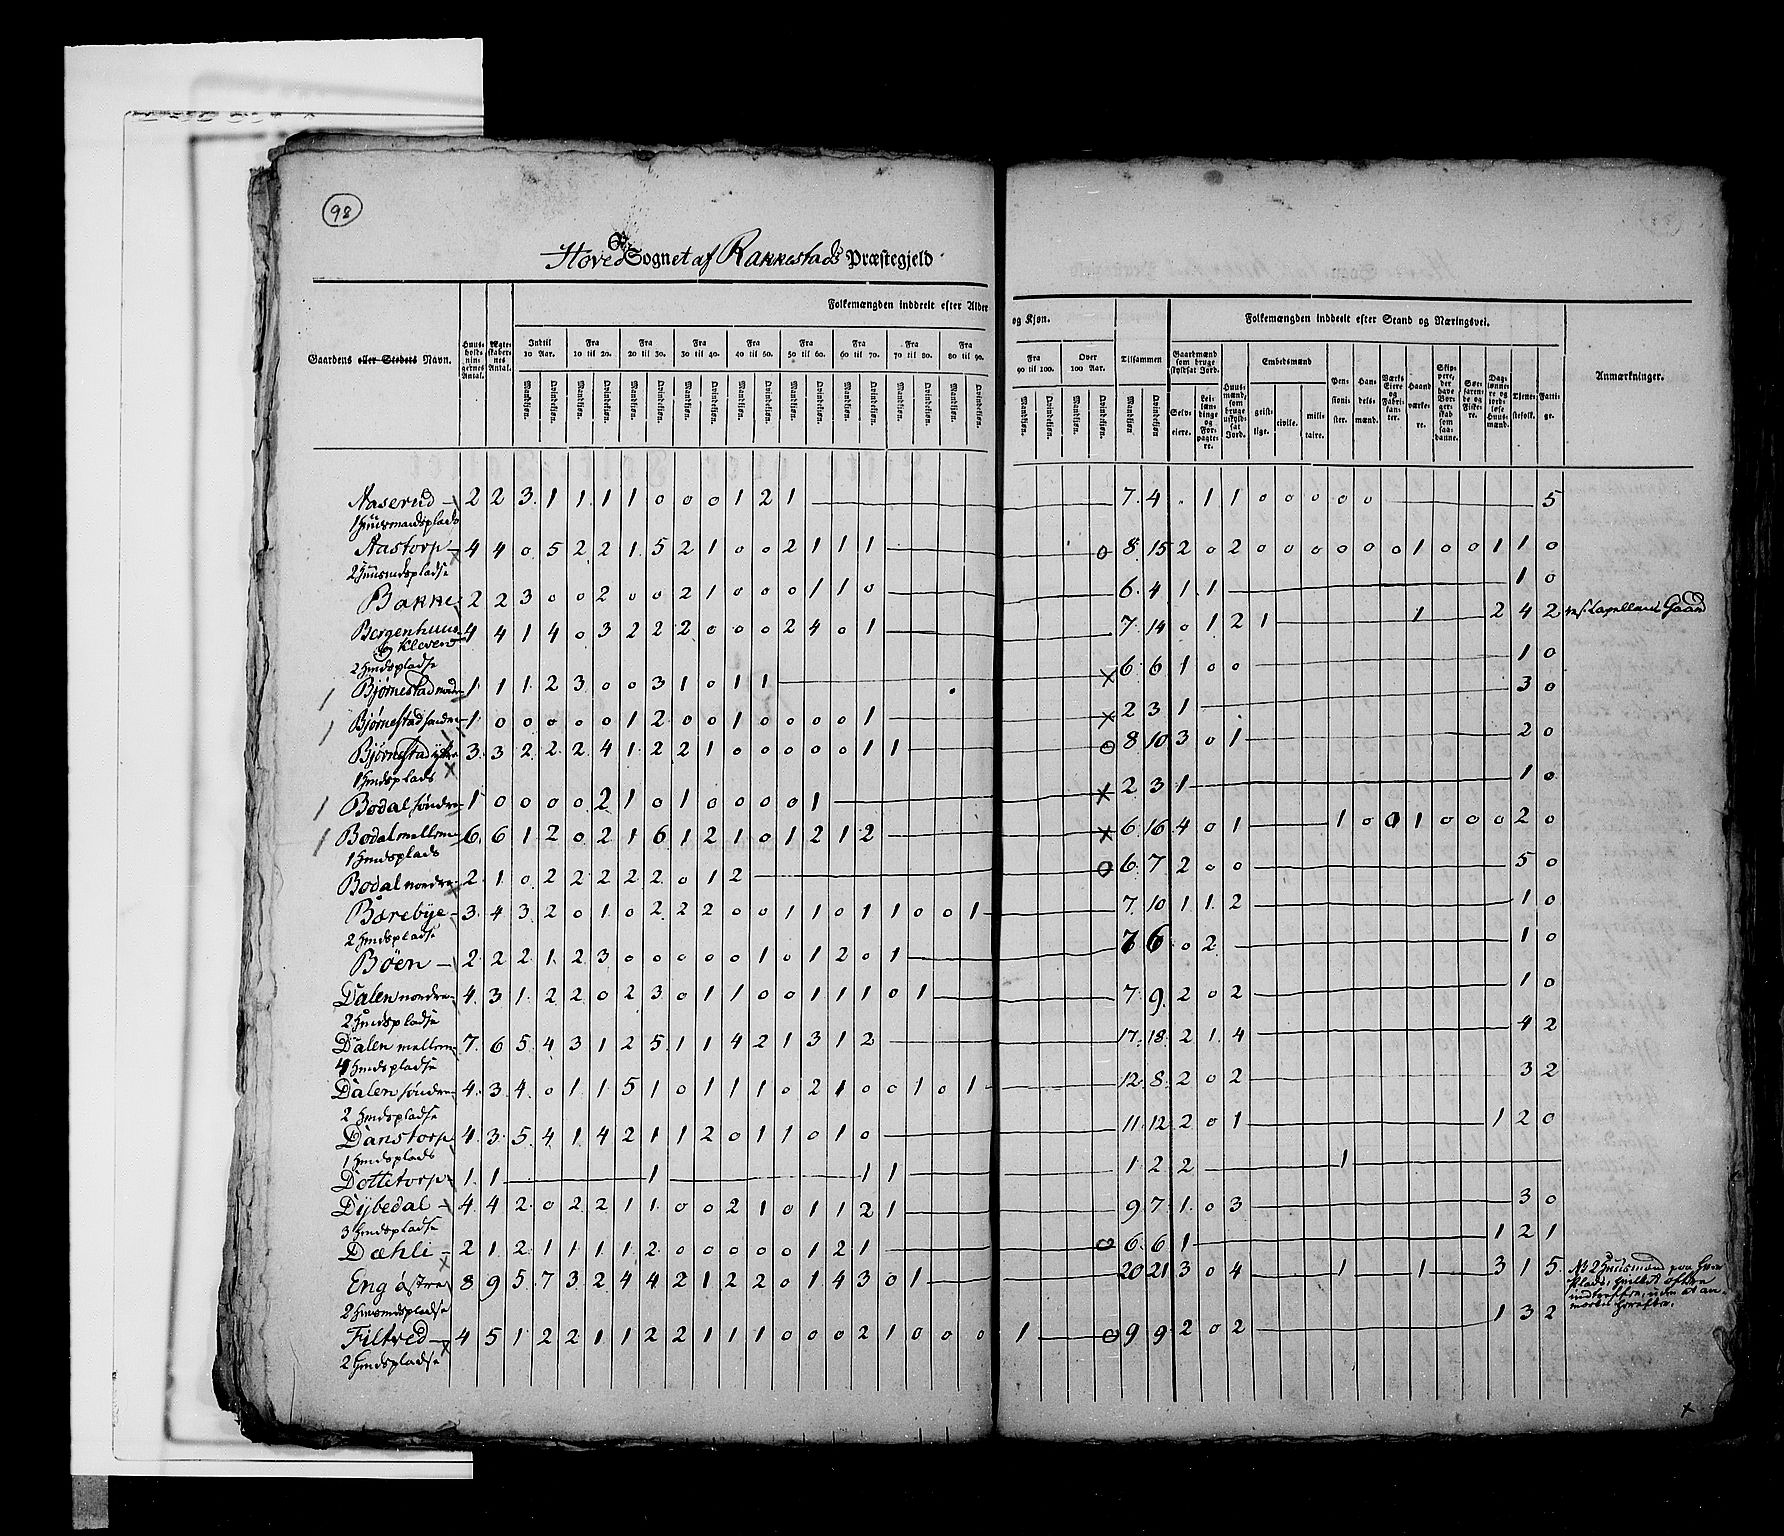 98
Hoved Sognet af Rakkestads Præstegjeld
Folkemængden inddeelt efter Alder og Kjøn.
Folkemængden inddeelt efter Stand og Næringsvei.
Gaardens eller Stedets Navn.
Huus-holdningernes Antal.
Ægteskabernes Antal.
Indtil 10 Aar. Fra 10 til 20. Fra 20 til 30. Fra 30 til 40. Fra 40 til 50. Fra 50 til 60. Fra 60 til 70. Fra 70 til 80. Fra 80 til 90. Fra 90 til 100. Over 100 Aar. Tilsammen
Mandkiøn. Qvindekiøn.
Gaardmænd som bruge skyldsat Jord.
Selv-eiere. Leilændinge og For-pagtere.
Huusmænd, som bruge uskyldsat Jord.
Embedsmænd
geistlige. civile. militaire.
Pensionister. Handelsmænd. Værks Eiere og Fabrikanter. Haandværkere. Skippere, der have Borgerskab som saadanne. Søefarende og Fiskere. Dagslønnere og jordløse Huusmænd. Tjenestefolk. Fattige.
Anmærkninger.
Aaserud 2 2 3 1 1 1 1 1 0 0 0 1 2 1 7 4 . 1 1 0 0 0 0 0 5
1 Huusmandsplads
Aastorp 4 4 0 5 2 2 1 5 2 1 0 0 2 1 1 1 0 8 15 2 0 2 0 0 0 0 0 0 1 0 0 1 1 0
2 Huusmdspladse
Bakke 2 2 3 0 0 2 0 0 2 1 0 0 0 1 1 0 6 4 1 1 1 0
Bergenhuus og Kleven 4 4 1 4 0 3 2 2 2 2 0 0 0 2 4 0 1 7 14 0 1 2 1 1 2 4 2 res. Capellans Gaard
2 Hmdspladse
Bjørnestad nordre 1 1 1 2 3 0 0 3 1 0 1 1 x 6 6 1 0 0 1 0
Bjørnestad søndre 1 0 0 0 0 0 1 2 0 0 1 0 0 0 0 1 x 2 3 1 3 0
Bjørnestad ystre 3 3 2 2 2 4 1 2 2 1 0 0 0 0 0 1 1 0 8 10 3 0 1 2 0
1 Hmdsplads
Bodal søndre 1 0 0 0 0 2 1 0 1 0 0 0 0 1 x 2 3 1 1 0
Bodal mellem 6 6 1 2 0 2 1 6 1 2 1 0 1 2 1 2 x 6 16 4 0 1 1 0 0 1 0 0 0 2 0
1 Hmdsplads
Bodal nordre 2 1 0 2 2 2 2 2 0 1 2 0 6 7 2 0 0 5 0
Bærebye 3 4 3 2 0 1 0 2 2 2 0 0 1 1 0 1 1 0 0 1 7 10 1 1 2 1 0
2 Hmdspladse
Bøen 2 2 2 1 2 3 0 0 0 0 0 1 0 1 2 0 1 7 6 0 2 1 0
Dalen nordre 4 3 1 2 2 0 2 3 0 1 1 0 0 1 1 1 0 1 7 9 2 0 2 1 0
2 Hmdspladse
Dalen mellem 7 6 5 4 3 1 2 5 1 1 4 2 1 3 1 2 17 18 2 1 4 4 2
4 Hmdspladse
Dalen søndre 4 3 4 0 1 1 5 1 0 1 1 1 0 2 1 0 0 1 0 1 12 8 2 0 2 3 2
2 Hmdspladse
Danstorp 4 3 5 4 1 4 2 1 1 2 0 1 1 0 1 0 11 12 2 0 1 1 2 0
1 Hmdsplads
Dottetorp 1 1 1 1 1 1 2 2 1
Dybedal 4 4 2 0 2 2 1 1 0 0 2 1 0 1 1 2 1 9 7 1 0 3 3 0
3 Hmdspladse
Dæhli 2 1 2 1 1 1 1 2 0 0 0 0 0 1 2 1 0 6 6 1 1 2 1
Eng østre 8 9 5 7 3 2 4 4 2 1 2 2 0 1 4 3 0 1 20 21 3 0 4 1 1 3 1 5 NB 2 Huusmænd paa hver Plads, hvilket oftere indtræffer, uden at anmærkes herefter.
2 Huusmdspladse
Filtved 4 5 1 2 2 1 1 2 2 1 1 1 0 0 0 2 1 0 0 0 0 1 0 9 9 2 0 2 1 3 2
2 Hmdspladse